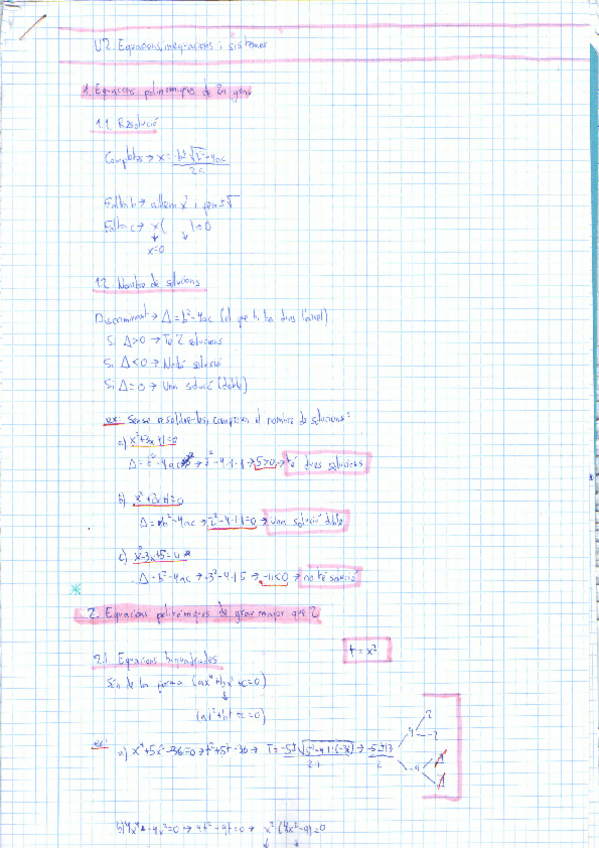 U2. Equacions, inequacions i sistemes
1. Equacions polinòmiques de 2n grau
1.1. Resolució
Completes → x = -b±√b²-4ac
2a
Falta b → aïllem x² i fem √
Falta c → x( )=0
x=0
1.2. Nombre de solucions
Discriminant → Δ = b²-4ac (el que hi ha dins l'arrel)
Si Δ>0 → Té 2 solucions
Si Δ<0 → No té solució
Si Δ=0 → Una solució (doble)
ex: Sense resoldre-les, el nombre de solucions:
a) x²+3x+1=0
Δ = b²-4ac → 3²-4·1·1 → 5>0 → té dues solucions
b) x²+2x+1=0
Δ = b²-4ac → 2²-4·1·1=0 → una solució doble
c) x²-3x+5=0
Δ = b²-4ac → -3²-4·1·5 → -11<0 → no té solució
2. Equacions polinòmiques de grau major que 2
t = x²
2.1. Equacions biquadrades
Són de la forma (ax⁴+bx²+c=0)
(at²+bt+c=0)
ex:
a) x⁴+5x²-36=0 → t²+5t-36 → t = -5±√5²-4·1·(-36) → -5±13
2·1
2
4
2
-2
-9
b) 4x⁴-9x²=0 → 4t²-9t=0 → x²·(4x²-9)=0